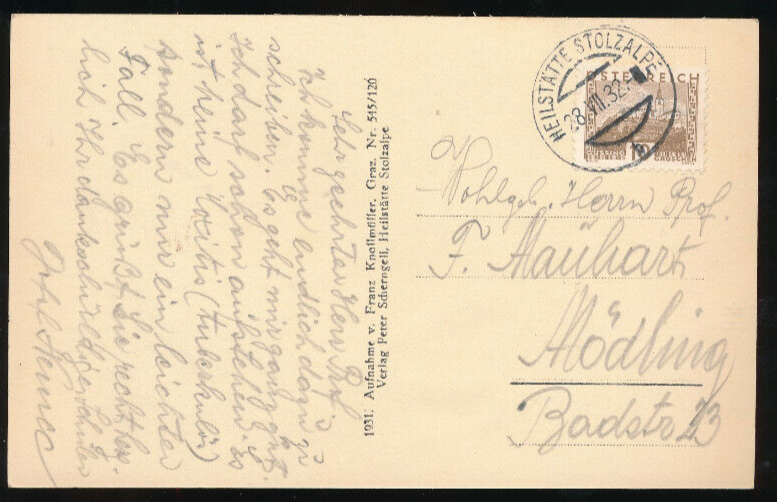 Sehr geehrter Herr Prof.
Ich komme endlich dazu zu
schreiben. Es geht mir ganz gut.
Ich darf schon aufstehen. Es
ist keine Coxitis (tuberkulös)
sondern nur ein leichter
Fall. Es grüßt Sie recht herz-
lich Ihr dankschuldige Schüler
1931; Aufnahme v. Franz Knollmüller, Graz, Nr. 545/120
Verlag Peter Scherngell, Heilstätte Stolzalpe
HEILSTÄTTE STOLZALPE
28.VII.32
ÖSTERREICH
10
GROSCHEN
Wohlgeb. Herrn Prof.
F. Mauhart
Mödling
Badstr 23